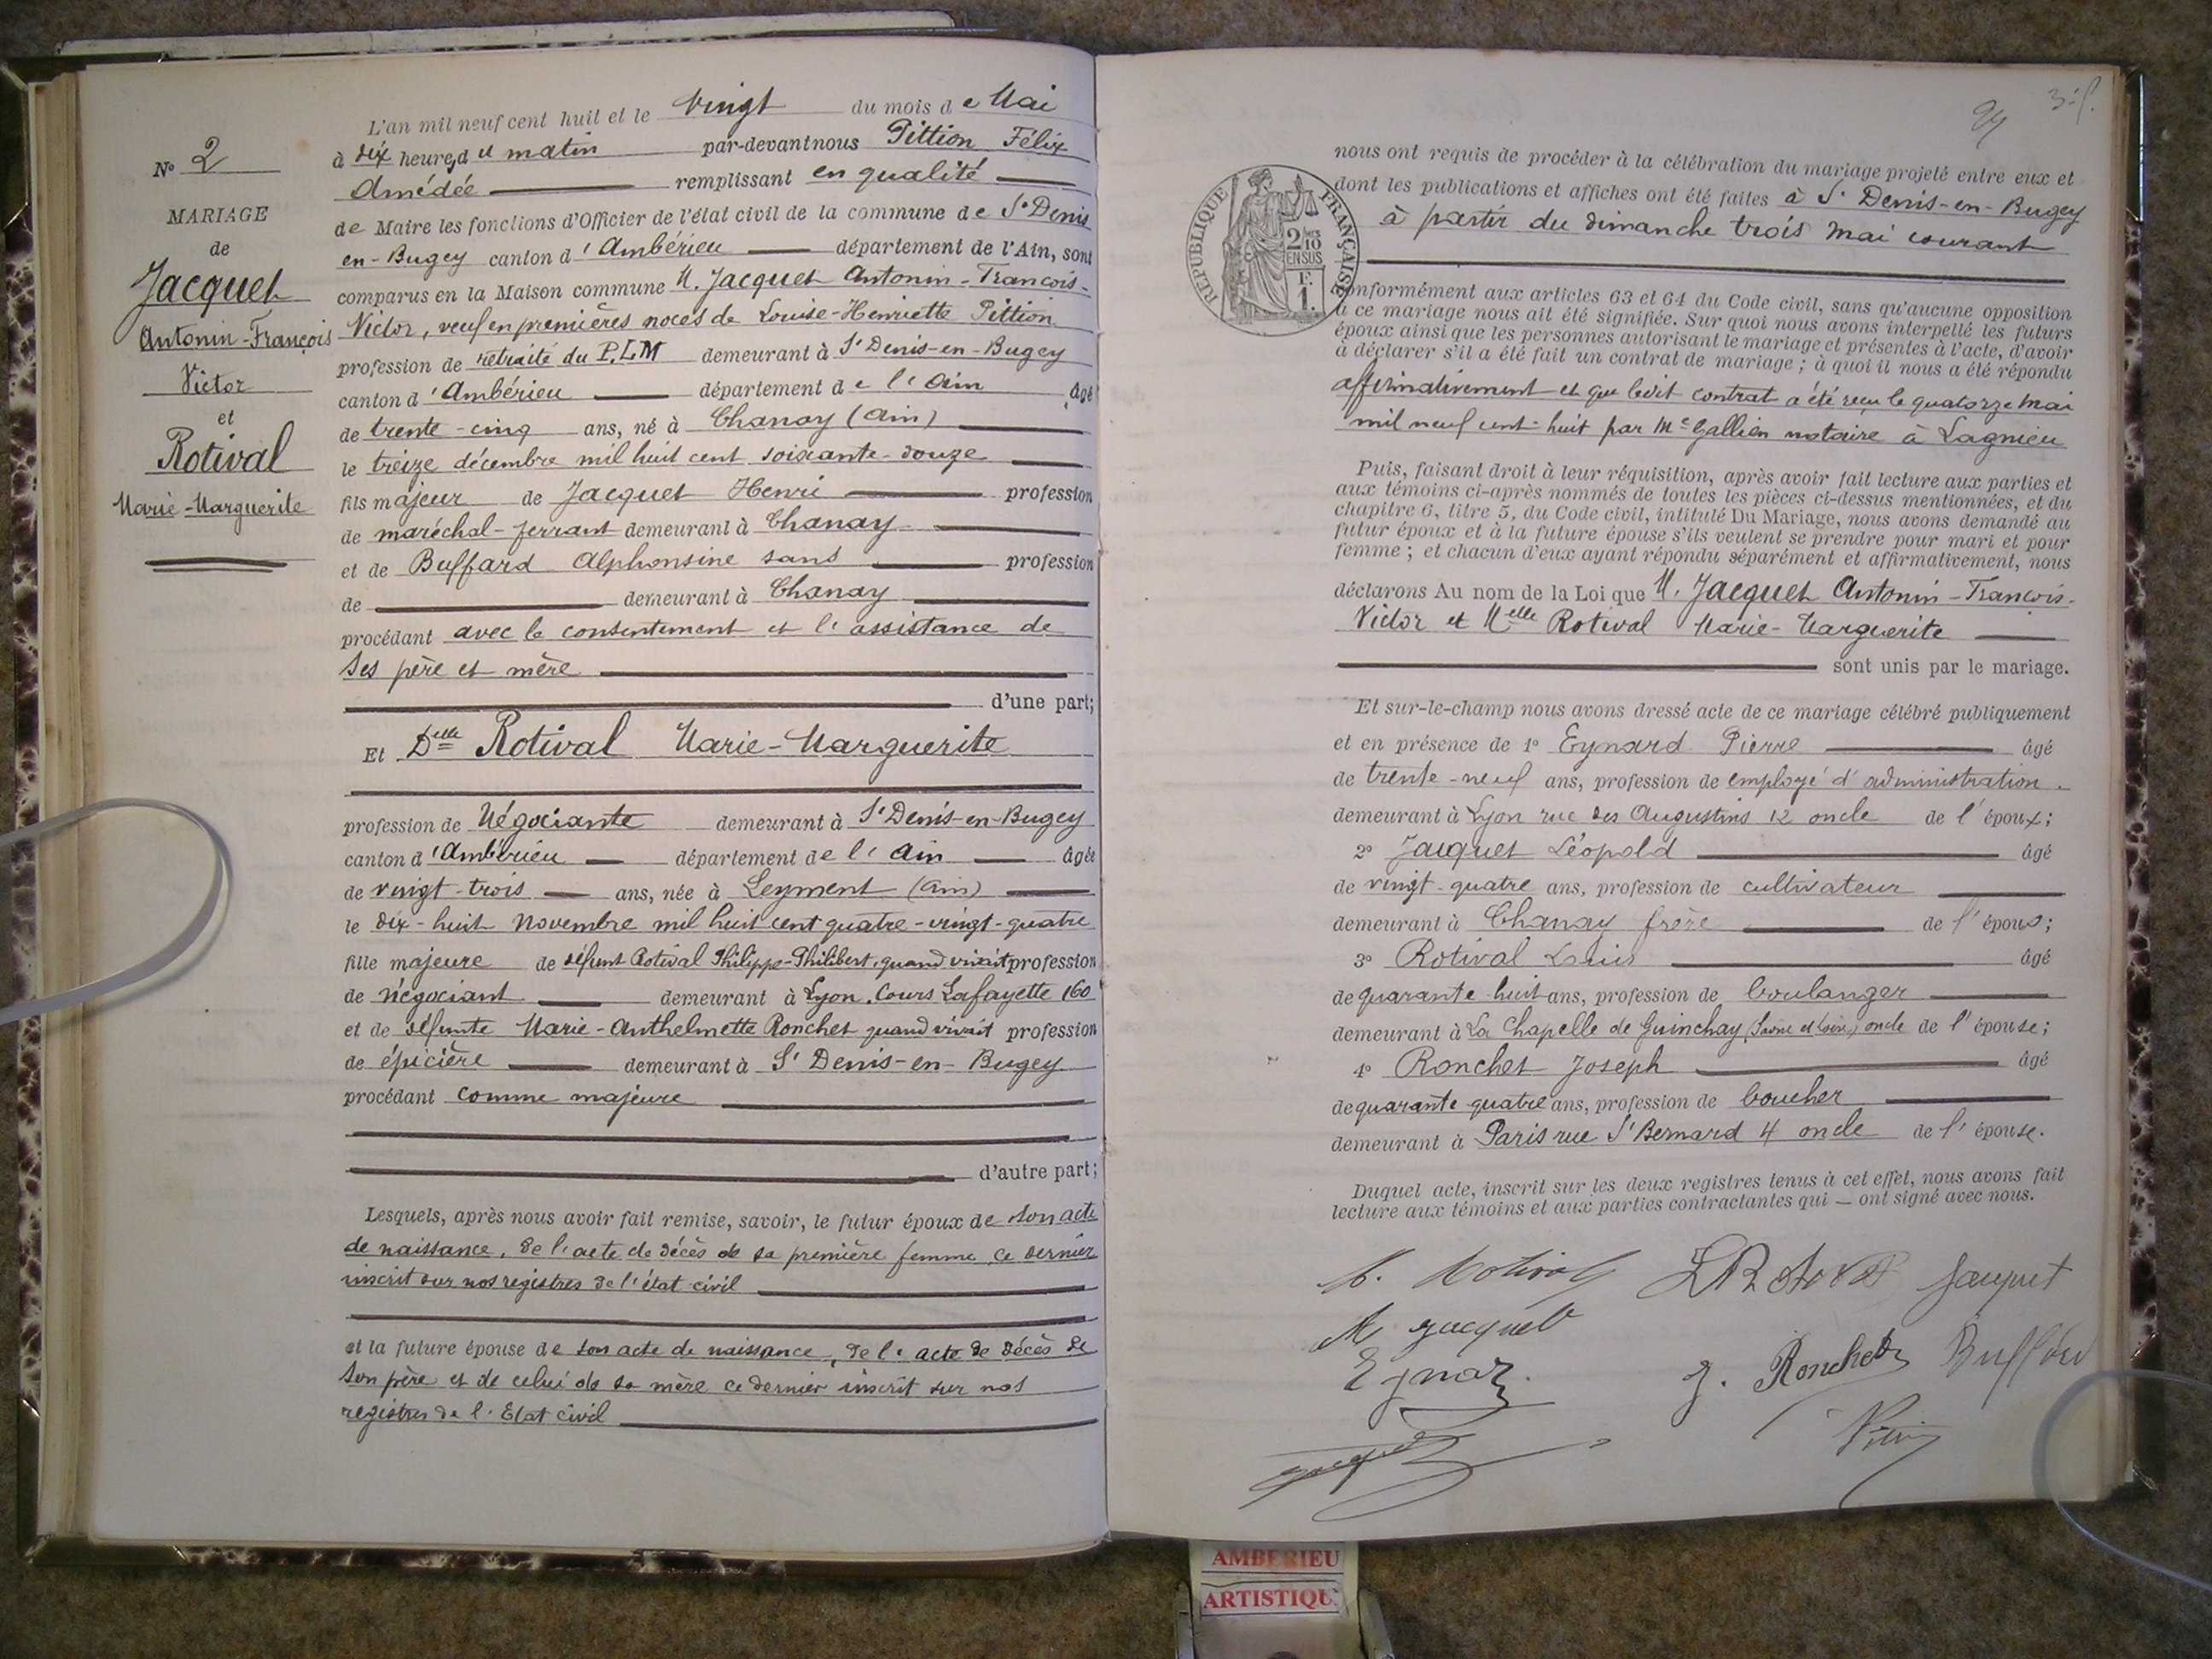 N° 2
MARIAGE
de
Jacquet
Antonin-François
Victor
et
Rotival
Marie-Marguerite
L'an mil neuf cent huit et le vingt du mois de Mai
à dix heures du matin par-devant nous Pittion Félix
Amédée remplissant en qualité
de Maire les fonctions d'Officier de l'état civil de la commune de St Denis
en-Bugey canton d'Ambérieu département de l'Ain, sont
comparus en la Maison commune M. Jacquet Antonin-François-
Victor, veuf en premières noces de Louise-Henriette Pittion
profession de retraité du P.L.M demeurant à St Denis-en-Bugey
canton d'Ambérieu département de l'Ain âgé
de trente-cinq ans, né à Chanay (Ain)
le treize décembre mil huit cent soixante-douze
fils majeur de Jacquet Henri profession
de maréchal-ferrant demeurant à Chanay
et de Buffard Alphonsine sans profession
de demeurant à Chanay
procédant avec le consentement et l'assistance de
ses père et mère
d'une part;
Et Delle Rotival Marie-Marguerite
profession de Négociante demeurant à St Denis-en-Bugey
canton d'Ambérieu département de l'Ain âgée
de vingt-trois ans, née à Leyment (Ain)
le dix-huit novembre mil huit cent quatre-vingt-quatre
fille majeure de défunt Rotival Philippe-Philibert, quand vivait profession
de négociant demeurant à Lyon, Cours Lafayette 160
et de défunte Marie-Anthelmette Ronchet quand vivait profession
de épicière demeurant à St Denis-en-Bugey
procédant comme majeure
d'autre part;
Lesquels, après nous avoir fait remise, savoir, le futur époux de son acte
de naissance, de l'acte de décès de sa première femme ce dernier
inscrit sur nos registres de l'état civil
et la future épouse de son acte de naissance, de l'acte de décès de
son père et de celui de sa mère ce dernier inscrit sur nos
registres de l'Etat civil
nous ont requis de procéder à la célébration du mariage projeté entre eux et
dont les publications et affiches ont été faites à St Denis-en-Bugey
à partir du dimanche trois mai courant
RÉPUBLIQUE FRANÇAISE
2/10
EN SUS
F.
1.
conformément aux articles 63 et 64 du Code civil, sans qu'aucune opposition
à ce mariage nous ait été signifiée. Sur quoi nous avons interpellé les futurs
époux ainsi que les personnes autorisant le mariage et présentes à l'acte, d'avoir
à déclarer s'il a été fait un contrat de mariage ; à quoi il nous a été répondu
affirmativement et que ledit contrat a été reçu le quatorze mai
mil neuf cent-huit par Me Gallien notaire à Lagnieu
Puis, faisant droit à leur réquisition, après avoir fait lecture aux parties et
aux témoins ci-après nommés de toutes les pièces ci-dessus mentionnées, et du
chapitre 6, titre 5, du Code civil, intitulé Du Mariage, nous avons demandé au
futur époux et à la future épouse s'ils veulent se prendre pour mari et pour
femme ; et chacun d'eux ayant répondu séparément et affirmativement, nous
déclarons Au nom de la Loi que M. Jacquet Antonin-François-
Victor et Melle Rotival Marie-Marguerite
sont unis par le mariage.
Et sur-le-champ nous avons dressé acte de ce mariage célébré publiquement
et en présence de 1° Eynard Pierre âgé
de trente-neuf ans, profession de employé d'administration
demeurant à Lyon rue des Augustins 12 oncle de l'époux;
2° Jacquet Léopold âgé
de vingt-quatre ans, profession de cultivateur
demeurant à Chanay frère de l'époux;
3° Rotival Louis âgé
de quarante huit ans, profession de boulanger
demeurant à La Chapelle de Guinchay (Saône et Loire) oncle de l'épouse;
4° Ronchet Joseph âgé
de quarante quatre ans, profession de boucher
demeurant à Paris rue St Bernard 4 oncle de l'épouse.
Duquel acte, inscrit sur les deux registres tenus à cet effet, nous avons fait
lecture aux témoins et aux parties contractantes qui — ont signé avec nous.
M. Rotival Jacquet
Jacquet
J. Ronchet
AMBERIEU
ARTISTIQU